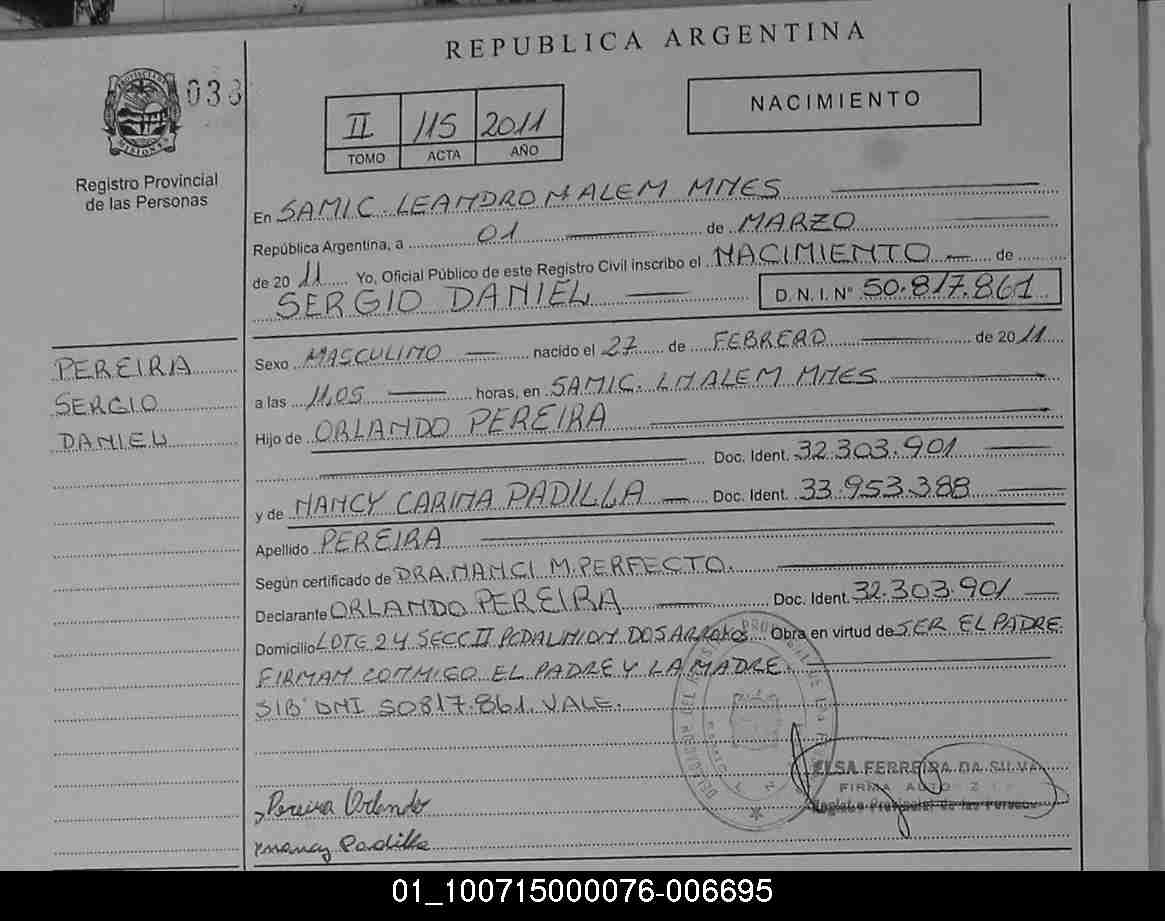 REPUBLICA ARGENTINA
038
NACIMIENTO
II 115 2011
TOMO ACTA AÑO
MISIONES
Registro Provincial
de las Personas
En SAMIC. LEANDRO N ALEM MNES
República Argentina, a 01 de MARZO
de 20 11 Yo, Oficial Público de este Registro Civil inscribo el NACIMIENTO de
SERGIO DANIEL D. N. I. Nº 50.817.861
PEREIRA
SERGIO
DANIEL
Sexo MASCULINO nacido el 27 de FEBRERO de 2011
a las 11,05 horas, en SAMIC. LNALEM MNES
Hijo de ORLANDO PEREIRA
Doc. Ident. 32.303.901
y de NANCY CARINA PADILLA Doc. Ident. 33.953.388
Apellido PEREIRA
Según certificado de DRA.NANCI M.PERFECTO.
Declarante ORLANDO PEREIRA Doc. Ident. 32.303.901
Domicilio LOTE 24 SECC II DOS ARROYOS Obra en virtud de SER EL PADRE
FIRMAN CONMIGO EL PADRE Y LA MADRE.
S/B DNI 50817.861 VALE.
ELSA FERREIRA DA SILVA
FIRMA
Registro Provincial de las Personas
Pereira Orlando
nancy Padilla
01_100715000076-006695